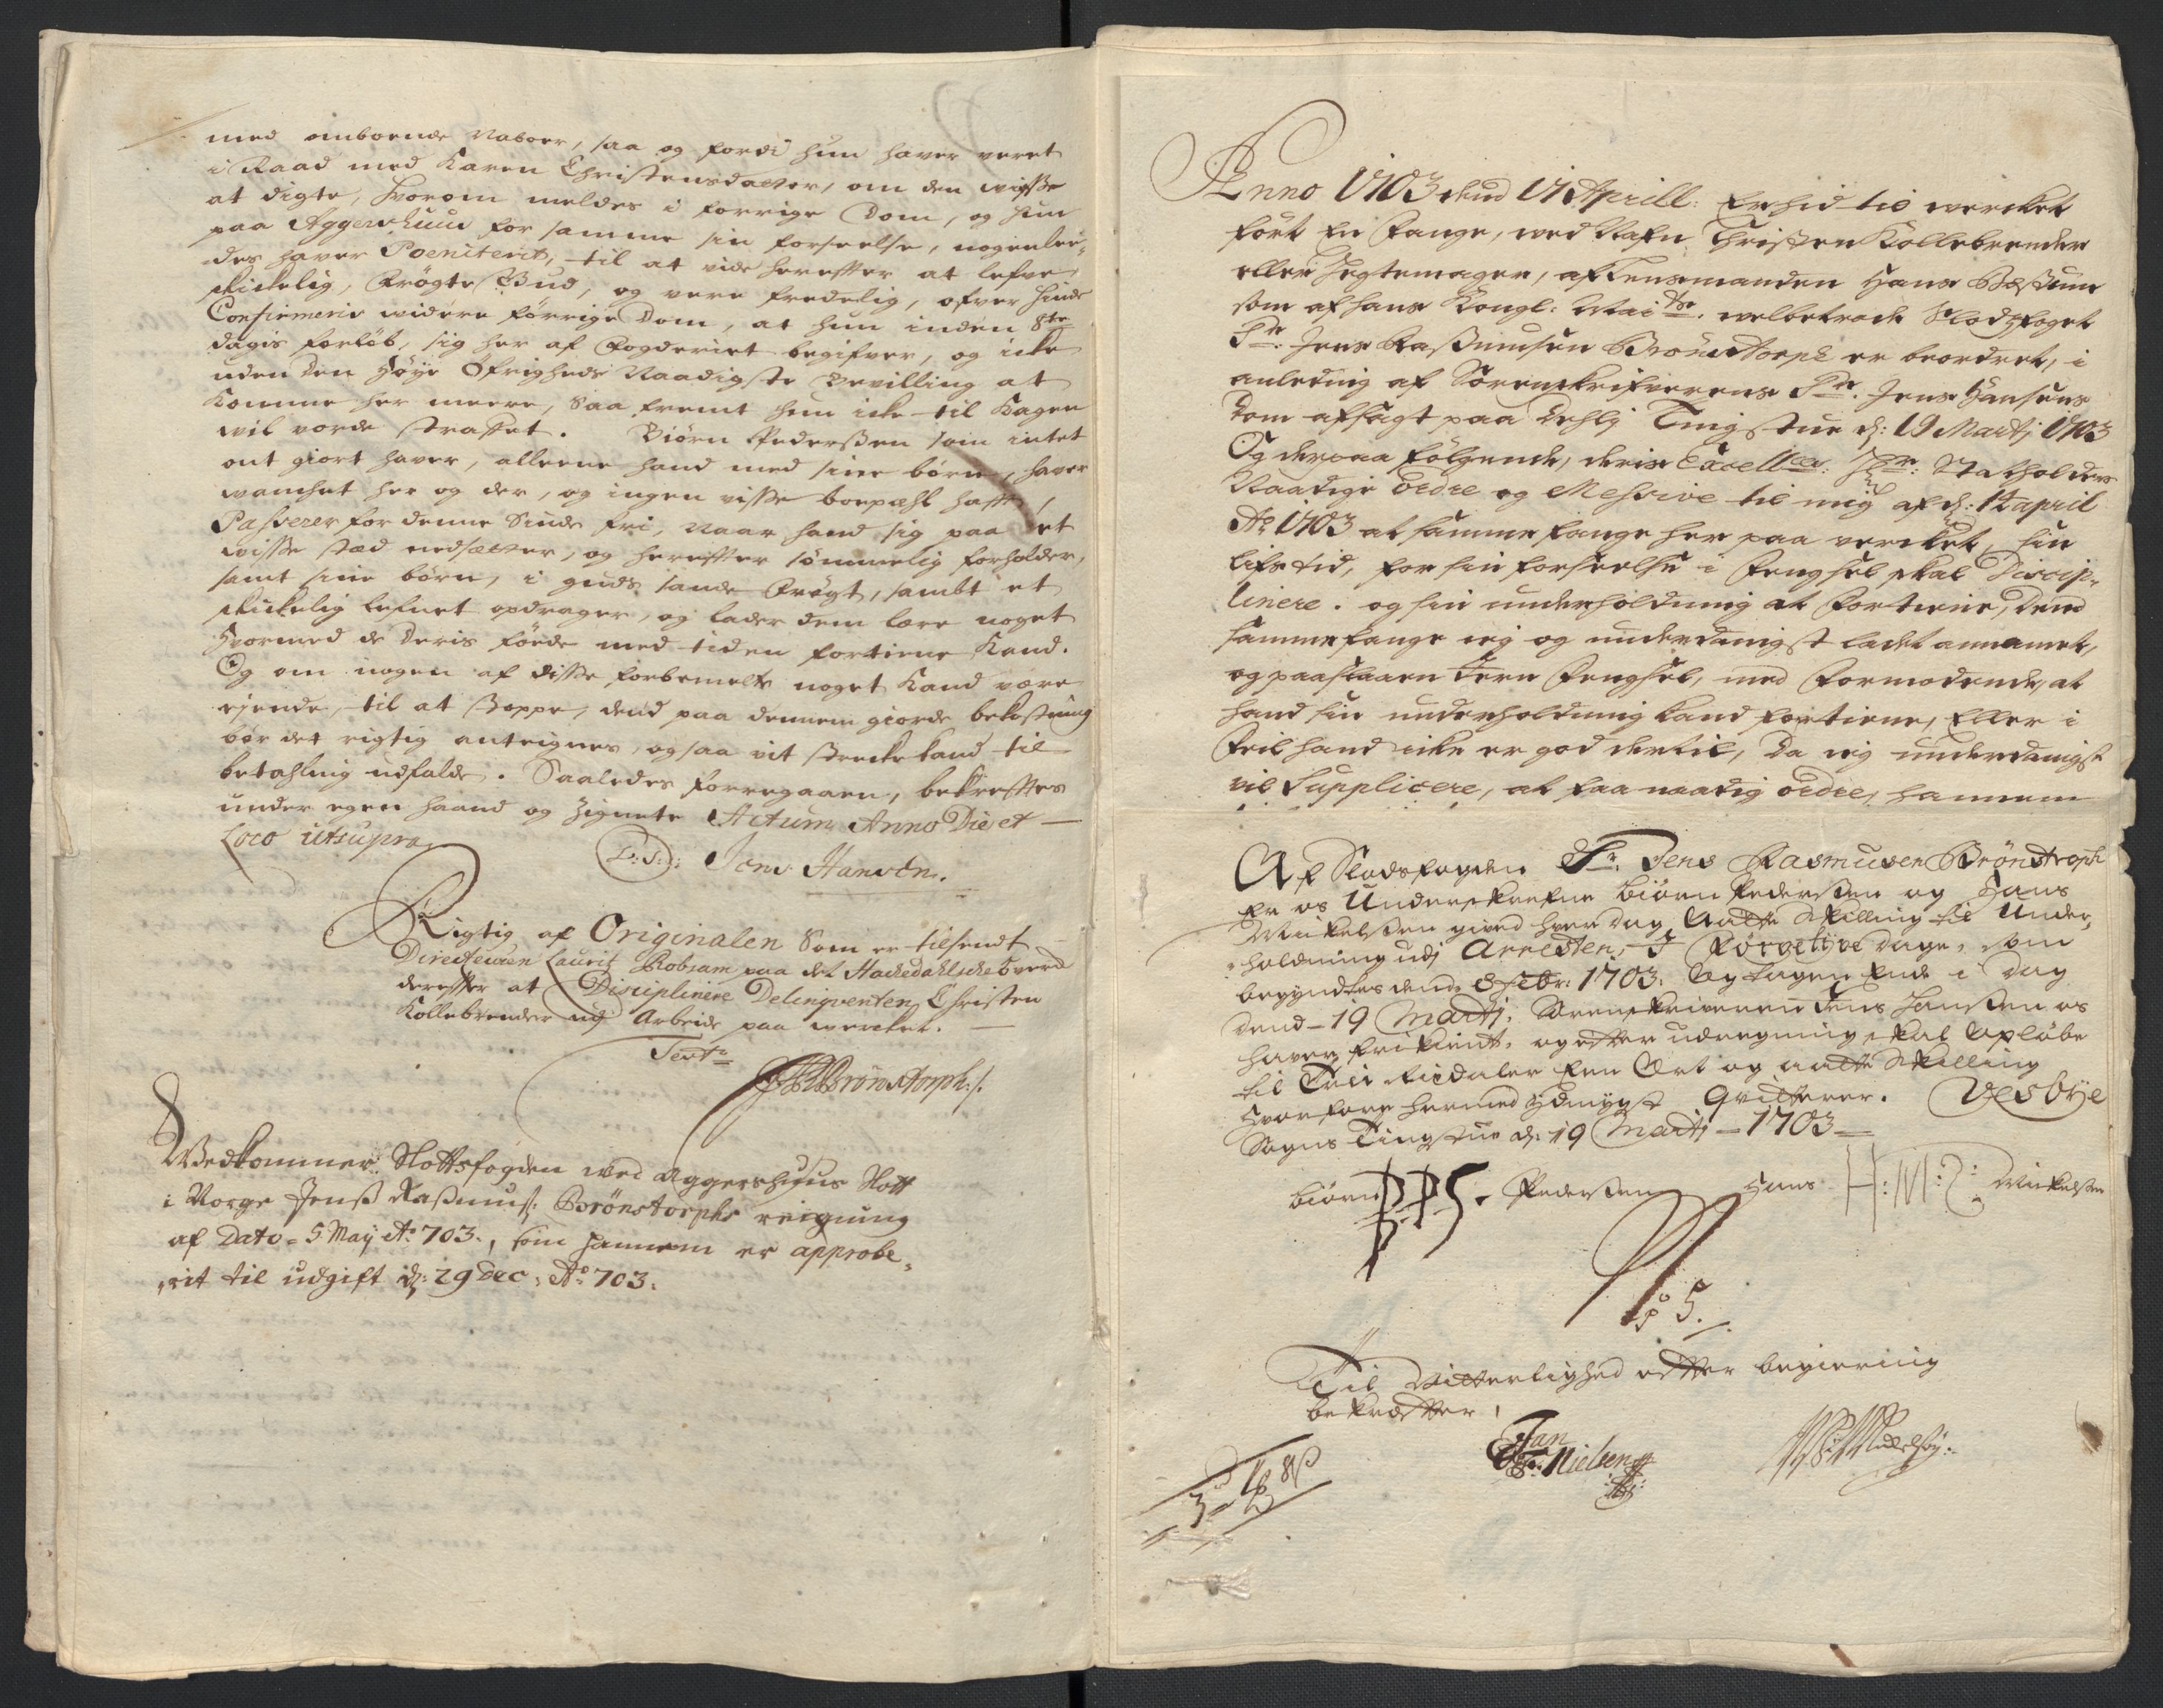 med omboende Naboer, saa og fordi hun haver veret
i Raad med Karen Christensdatter, om den wisse
at digte, hvorom meldes i forrige Dom, og hun
paa Aggershuus for samme sin forseelse, nogenlee-
des haver Poeniterit, til at vide herefter at lefve
skickelig, frögte Gud, og vere fredelig, ofver hinde
Confirmeris widere förrige Dom, at hun inden 8te
dagis forlöb, sig her af Fogderiet begifver, og icke
uden den Höye Öfrigheds Naadigste Bevilling at
komme her meere, Saa fremt hun icke til Kagen
wil vorde straffet. Biörn Pedersen som intet
ont giort haver, alleene hand med sine börn, haver
wancket her og der, og ingen visse boepæhl hafft,
Passerer for denne Sinde fri, Naar hand sig paa et
wisse stæd nedsætter, og herefter sömmelig forholder,
samt sine börn, i guds sande Frögt, sambt et
skickelig lefnet opdrager, og lader dem lære noget
hvormed de deris föede med tiden fortiene kand.
Og om nogen af disse forbemelte noget kand være
ejende, til at stoppe, dend paa dennem giorde bekostning
bör det rigtig anteignes, og saa vit strecke kand til
betahling udfalde. Saaledes forregaaen, bekreftes
under egen haand og Zignete Actum Anno Die et
Loco utsupra.
L: S: Jens Hansen.
Rigtig af Originalen Som er tilsendt
Directeuren Laurits Robsam paa det Hackedahlske verck
derefter at Disciplinere Delinqventen Christen
Kollebrender udj Arbeide paa wercket.
Test:
JRBrönstorph:/.
Wedkommer Slottsfogden wed Aggershuus Slott
i Norge Jenss Rassmuss: Brönstorphs reigning
af Dato 5 May Ao 703., som hannem er approbe-
rit til udgift d: 29 Dec: Ao 703.
Anno 1703 dend 17 Aprill: Er hid til wercket
fört En Fange, wed Nafn Christen Kollebrender
eller Hegtemager, af Lensmanden Hans Bessum
som af hans Kongl: Maits. welbetrode Slodzfoget
Sr. Jens Rassmusen Brönstorph er beordret, i
anledning af Sorenskrifverens Sr. Jens Hansens
Dom afsagt paa Tingstue d: 19 Martj 1703
Og derpaa fölgende, deris Excellce: Hr: Statholders
Naadige Ordre og Missive til mig af d: 14 april
Ao 1703 at samme fange her paa vercket, sin
lifs tid, for sin forseelse i Fengsel skal Discip-
linere. og sin underholdning at Fortiene, dend
samme fange ieg og underdanigst ladet annamet,
og paaslaaen Jern Fengsel, med Formodende, at
hand sin underholdning kand fortiene, Eller i
feil hand icke er god dertil, da ieg underdanigst
vil Supplicere, at faa naadig ordre, hannem
Af Slodsfogden Sr. Jens Rasmusen Brönstroph
Er os Underskrefne Biörn Pedersen og Hans
Mickelsen gived hver dag Aatte Skilling til Under-
holdning udj Arresten, I Förretijve dage, som
begyndtes dend 8 Febr: 1703. Og tagen Ende i Dag
dend 19 Martj, Sorenskriveren Jens Hansen os
haver frikient, og efter udregning skal beløbe
til Trei Ricdaler Een Ort og aatte Skilling
hvorfore hermed ydmygst Qvitterer. Vesbye
Sogns Tingstue d: 19 Martj 1703
Biörn BPS. Pedersen Hans H:M:S: Mickelsen
No 5.
Til Vitterlighed efter begiering
bekrefter,
Jan
Nielsen
3 1 8